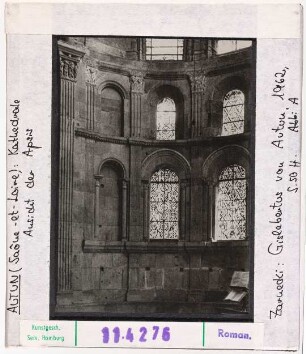 AUTUN (Saône-et-Loire): Kathedrale
Ansicht der Apsis
Zarnecki: Gislebertus von Autun 1962,
S. 50 H Abb. A
Kunstgesch.
Sem. Hamburg
11.4276
Roman.